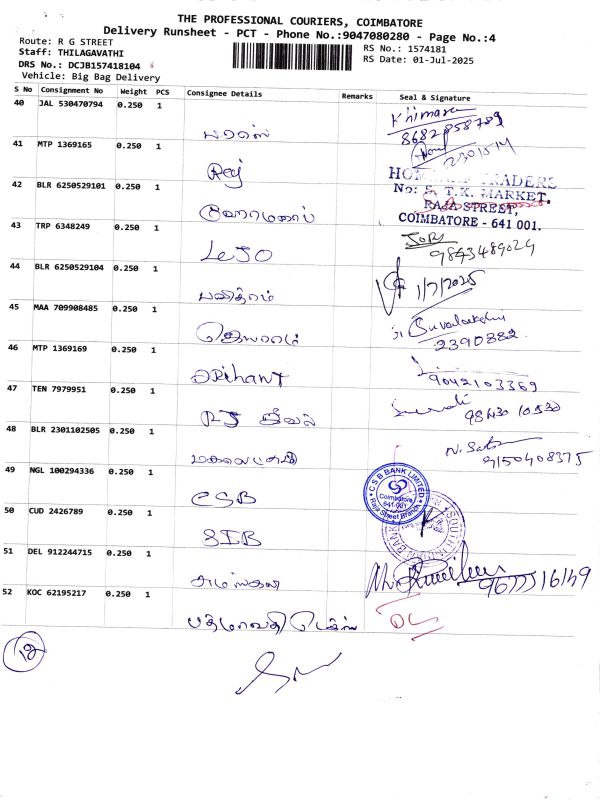 THE PROFESSIONAL COURIERS, COIMBATORE
Delivery Runsheet - PCT - Phone No.:9047080280 - Page No.:4
Route: R G STREET
RS No.: 1574181
Staff: THILAGAVATHI
RS Date: 01-Jul-2025
DRS No.: DCJB157418104
Vehicle: Big Bag Delivery
S No Consignment No Weight PCS Consignee Details Remarks Seal & Signature
40 JAL 530470794 0.250 1
Khimara
8682858789
41 MTP 1369165 0.250 1
Raj
HO TRADERS
No: 5, T.K. MARKET,
42 BLR 6250529101 0.250 1
RAJA STREET,
COIMBATORE - 641 001.
43 TRP 6348249 0.250 1
LeJO
9843489024
44 BLR 6250529104 0.250 1
1/7/2025
45 MAA 709908485 0.250 1
2390882
46 MTP 1369169 0.250 1
ARihanT
9042103369
47 TEN 7979951 0.250 1
RJ
98430 10530
48 BLR 2301102505 0.250 1
9150408375
49 NGL 100294336 0.250 1
CSB
CSB BANK LIMITED
Coimbatore
641 001
Raja Street Branch
50 CUD 2426789 0.250 1
SIB
SOUTH INDIAN BANK
51 DEL 912244715 0.250 1
52 KOC 62195217 0.250 1
பத்மாவதி
DL